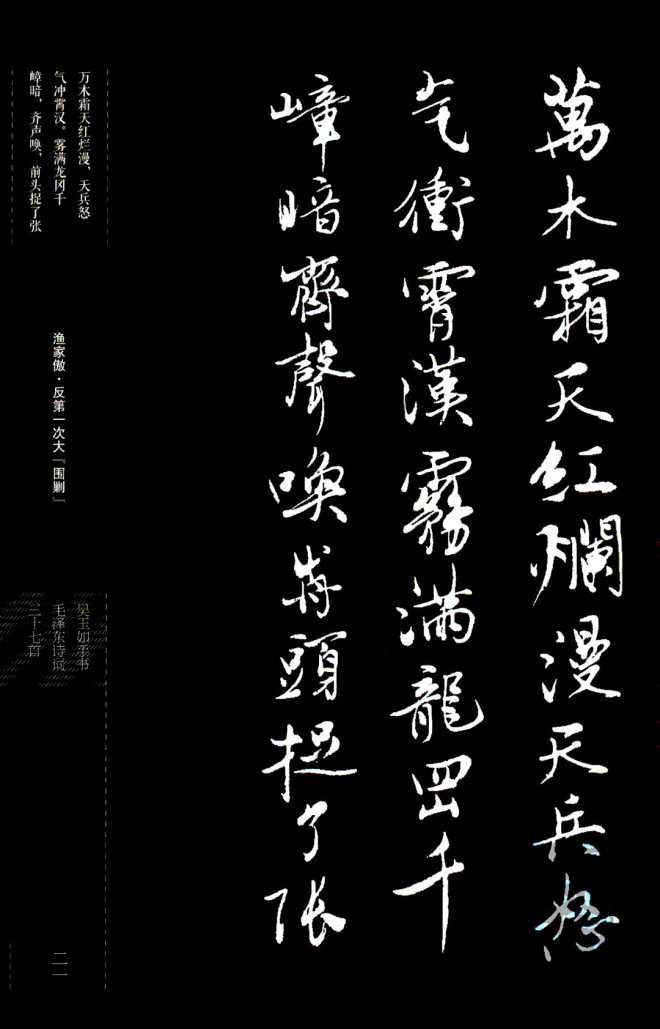 萬木霜天紅爛漫天兵怒
气衝霄漢霧滿龍岡千
嶂暗齊聲喚前頭捉了張
万木霜天红烂漫，天兵怒
气冲霄汉。雾满龙冈千
嶂暗，齐声唤，前头捉了张
渔家傲·反第一次大『围剿』
吴玉如手书
毛泽东诗词
三十七首
二一